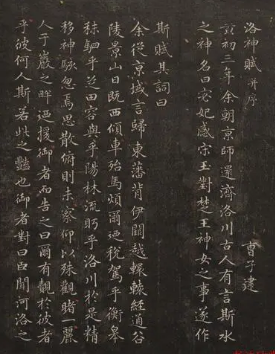 洛神賦 并序
曹子建
黃初三年余朝京師還濟洛川古人有言斯水
之神名曰宓妃感宋玉對楚王神女之事遂作
斯賦其詞曰
余從京域言歸東藩背伊闕越轘轅經通谷
陵景山日既西傾車殆馬煩爾迺稅駕乎衡皋
秣駟乎芝田容與乎陽林流眄乎洛川於是精
移神駭忽焉思散俯則未察仰以殊觀睹一麗
人于巖之畔迺援御者而告之曰爾有覿於彼者
乎彼何人斯若此之豔也御者對曰臣聞河洛之